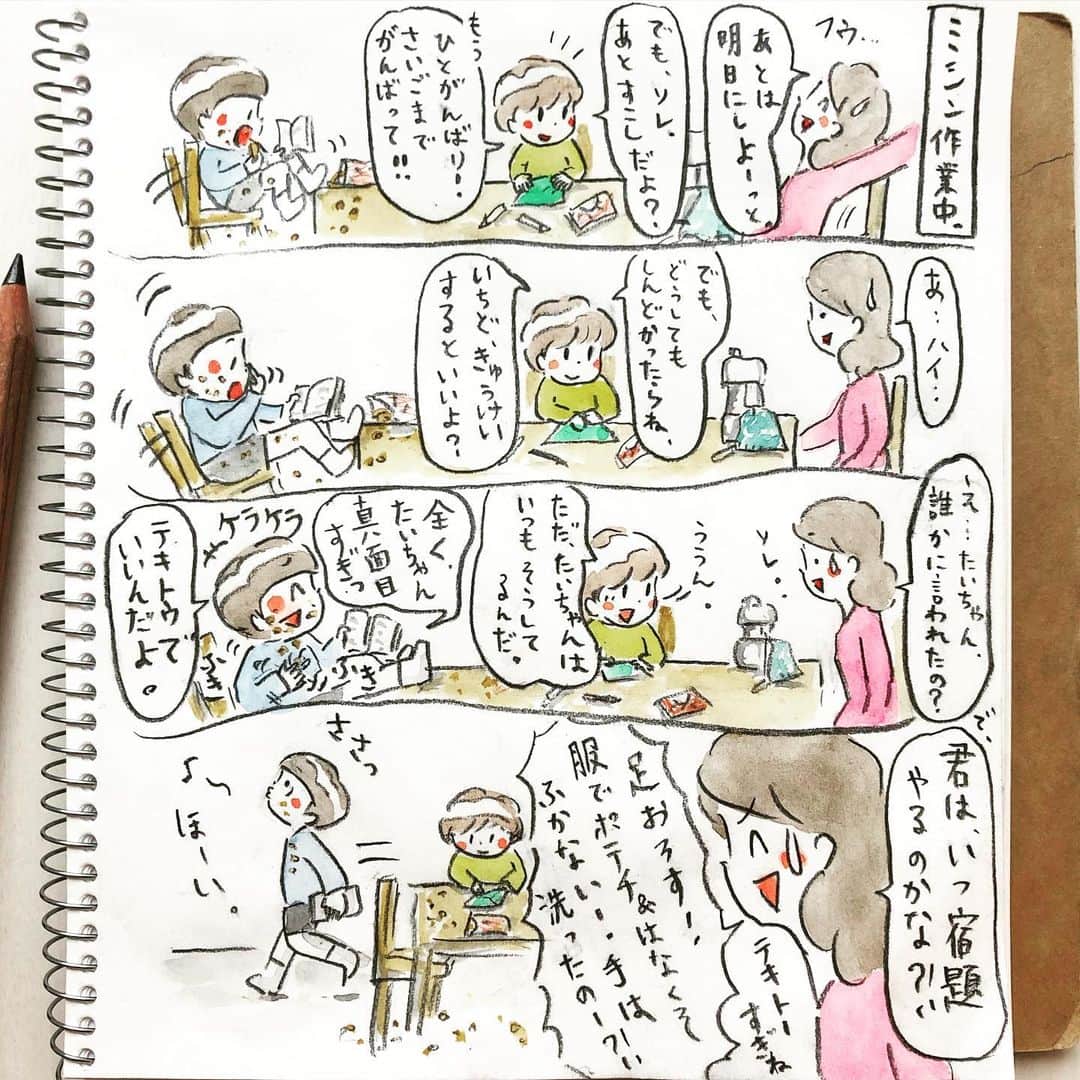 ミシン作業中。
フウ…
あとは
明日にしよーっと。
でも、ソレ、
あとすこしだよ?
もう
ひとがんばり!
さいごまで
がんばって!!
あ…ハイ…
でも、
どうしても
しんどかったらね、
いちど、きゅうけい
するといいよ?
え…たいちゃん、
誰かに言われたの?
ソレ。
ううん。
ただ、たいちゃんは
いつもそうして
るんだ。
全く、
たいちゃん
真面目
すぎっ
ケラケラ
テキトウで
いいんだよ。
ふき
ふき
で、
君は、いつ宿題
やるのかな?!!
テキトー
すぎね
足おろす!
服でポテチ&はなくそ
ふかない!手は?!!
洗ったのー?!!
ささっ
ほーい。